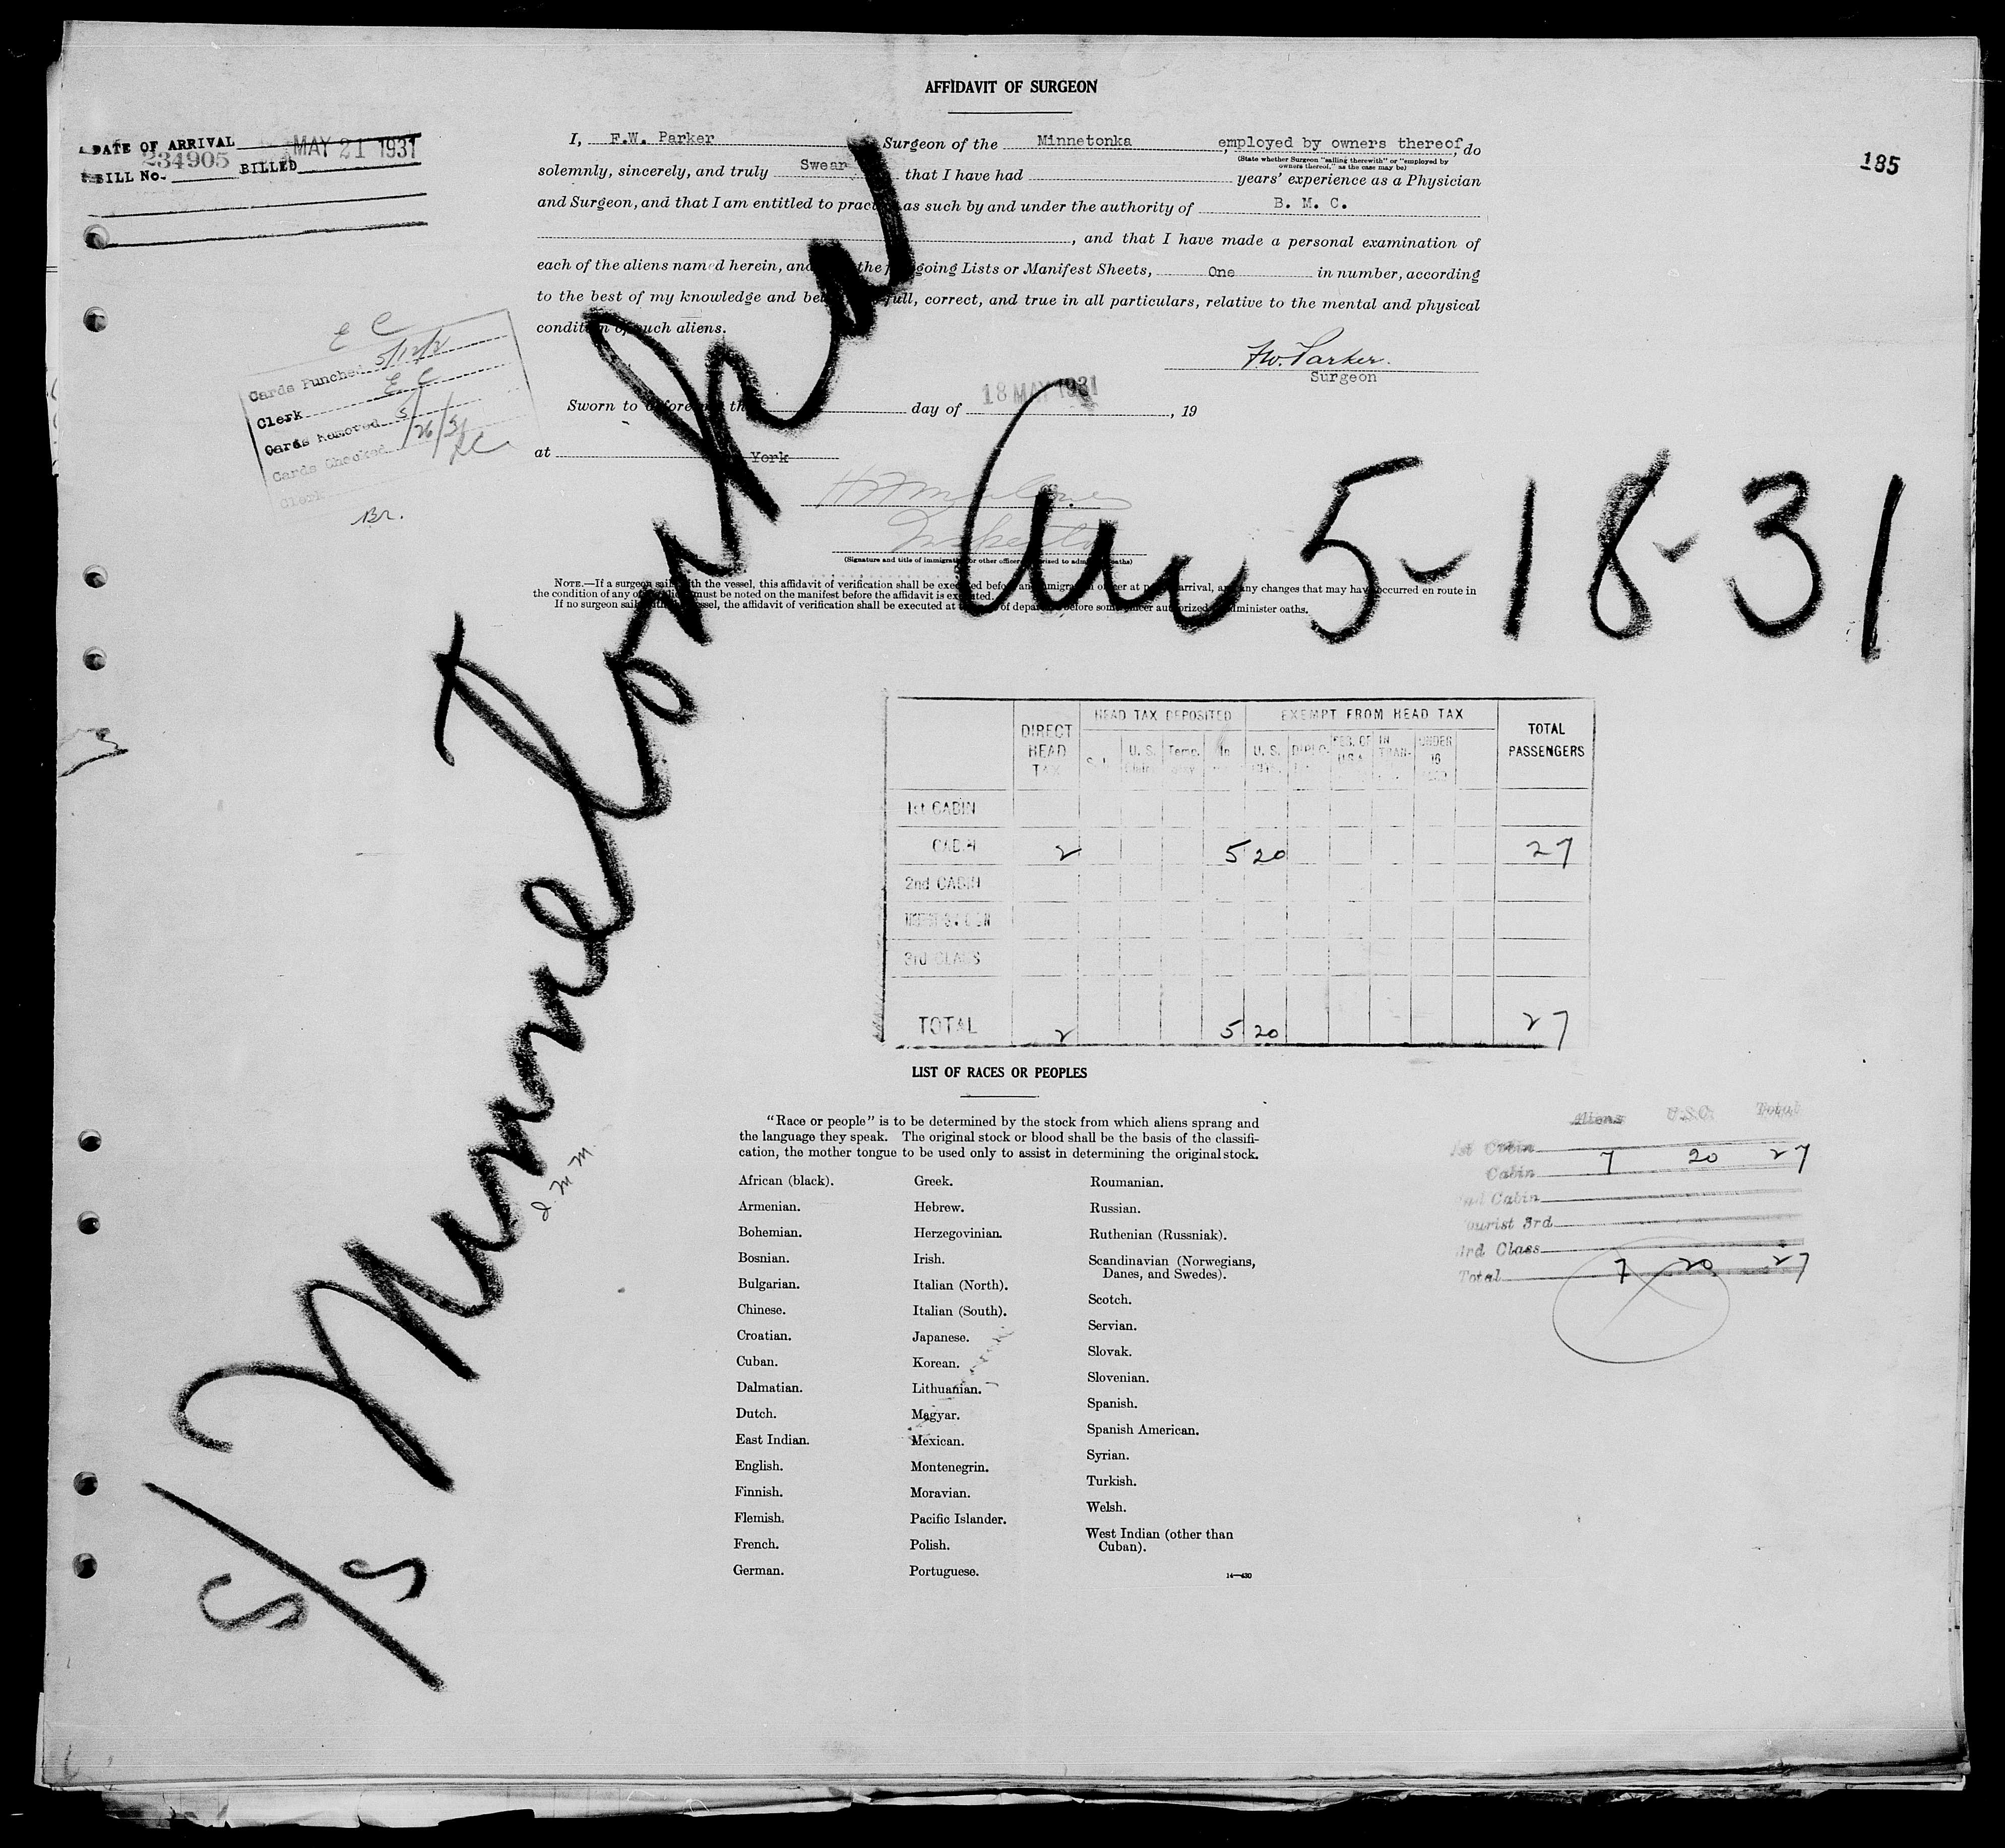 AFFIDAVIT OF SURGEON
DATE OF ARRIVAL MAY 21 1931
BILL No. 234905 BILLED
185
I, F.W. Parker Surgeon of the Minnetonka, employed by owners thereof, do
(State whether Surgeon "sailing therewith" or "employed by
owners thereof," as the case may be)
solemnly, sincerely, and truly Swear that I have had years' experience as a Physician
and Surgeon, and that I am entitled to practice as such by and under the authority of B. M. C.
, and that I have made a personal examination of
each of the aliens named herein, and the foregoing Lists or Manifest Sheets, One in number, according
to the best of my knowledge and belief full, correct, and true in all particulars, relative to the mental and physical
condition of such aliens.
F.W. Parker.
Surgeon
Sworn to before the day of 18 MAY 1931, 19
at York
Inspector
(Signature and title of immigration or other officer authorized to administer oaths)
NOTE.—If a surgeon sails with the vessel, this affidavit of verification shall be executed before an immigration officer at port of arrival, and any changes that may have occurred en route in
the condition of any of the aliens must be noted on the manifest before the affidavit is executed.
If no surgeon sails with the vessel, the affidavit of verification shall be executed at port of departure before some officer authorized to administer oaths.
E C
Cards Punched 5/12/2
Clerk E C
Cards Removed 5/26/31
Cards Checked
Clerk
Br.
S/S Minnetonka
Arr 5-18-31
I. M. M.
DIRECT HEAD TAX HEAD TAX DEPOSITED EXEMPT FROM HEAD TAX TOTAL PASSENGERS
U. S. Temp. In U. S. DIPLO. RES. OF U.S.A. IN TRAN- UNDER 16
1st CABIN
CABIN 2 5 20 27
2nd CABIN
3rd CLASS
TOTAL 2 5 20 27
LIST OF RACES OR PEOPLES
"Race or people" is to be determined by the stock from which aliens sprang and
the language they speak. The original stock or blood shall be the basis of the classifi-
cation, the mother tongue to be used only to assist in determining the original stock.
African (black).
Armenian.
Bohemian.
Bosnian.
Bulgarian.
Chinese.
Croatian.
Cuban.
Dalmatian.
Dutch.
East Indian.
English.
Finnish.
Flemish.
French.
German.
Greek.
Hebrew.
Herzegovinian.
Irish.
Italian (North).
Italian (South).
Japanese.
Korean.
Lithuanian.
Magyar.
Mexican.
Montenegrin.
Moravian.
Pacific Islander.
Polish.
Portuguese.
Roumanian.
Russian.
Ruthenian (Russniak).
Scandinavian (Norwegians,
Danes, and Swedes).
Scotch.
Servian.
Slovak.
Slovenian.
Spanish.
Spanish American.
Syrian.
Turkish.
Welsh.
West Indian (other than
Cuban).
14—430
Aliens U.S.C. Total
1st Cabin
Cabin 7 20 27
2nd Cabin
Tourist 3rd
3rd Class
Total 7 20 27